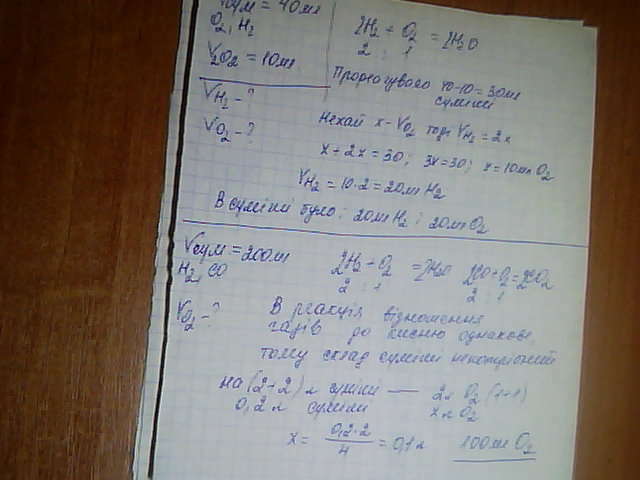 Vсум = 40мл
O2, H2
V2O2 = 10мл
VH2 - ?
VO2 - ?
2H2 + O2 = 2H2O
2 : 1
Прореагувало 40-10=30мл
суміші
Нехай x - VO2 тоді VH2 = 2x
x + 2x = 30; 3x=30; x=10мл O2
VH2 = 10·2=20мл H2
В суміші було: 20мл H2 і 20мл O2
Vсум. = 200мл
H2, CO
VO2 - ?
2H2 + O2 = 2H2O 2CO + O2 = 2CO2
2 : 1 2 : 1
В реакція відношення
газів до кисню однакове,
тому склад суміші
на (2+2) л суміші — 2л O2 (1+1)
0,2 л суміші x л O2
x = 0,2·2 / 4 = 0,1 л 100мл O2